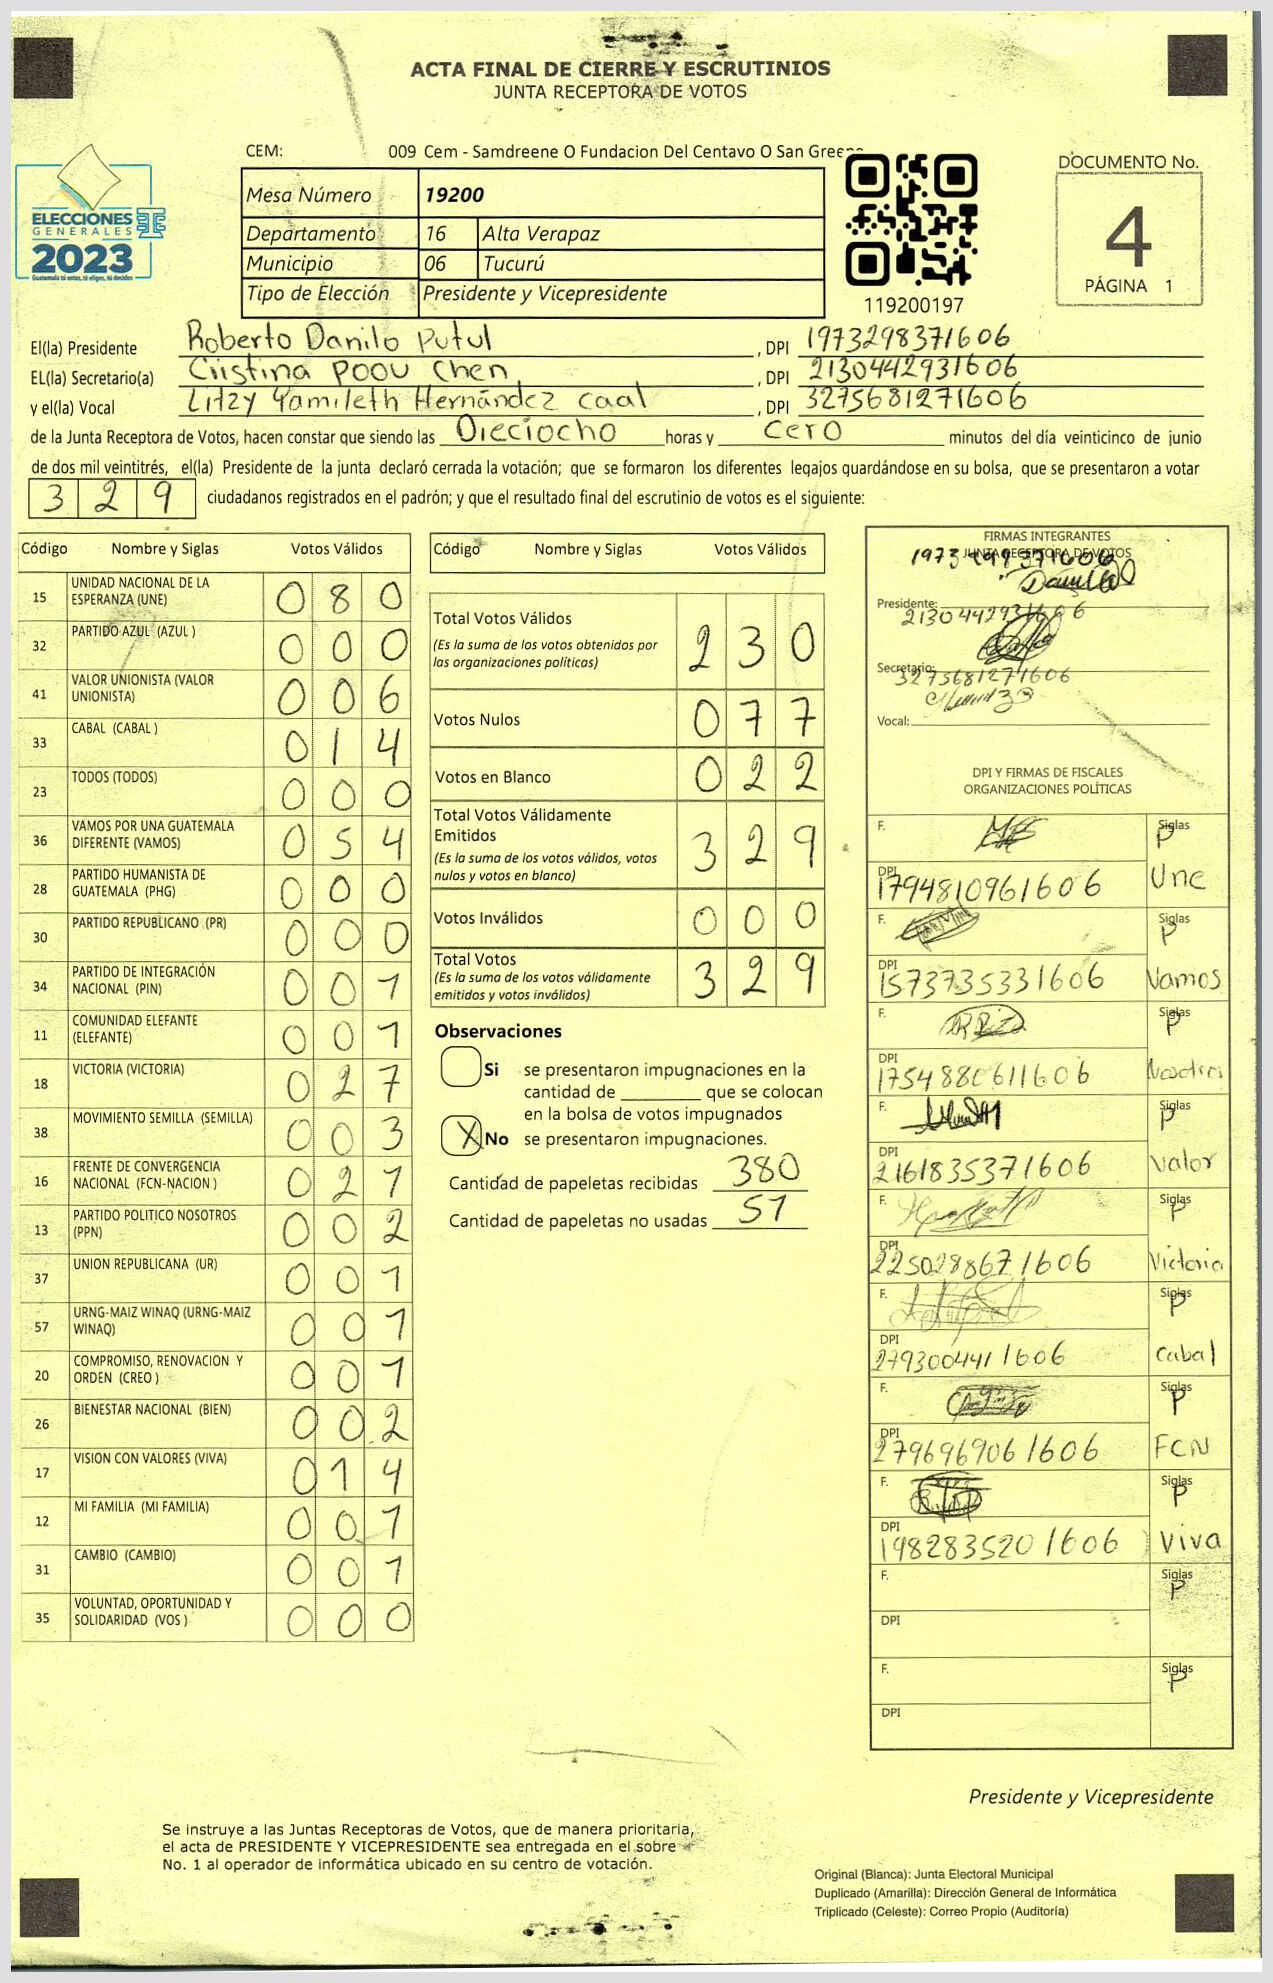 ACTA FINAL DE CIERRE Y ESCRUTINIOS
JUNTA RECEPTORA DE VOTOS
CEM: 009 Cem - Samdreene O Fundacion Del Centavo O San Greene
DOCUMENTO No.
4
PÁGINA 1
ELECCIONES
GENERALES
2023
Guatemala tú votas, tú eliges, tú decides
Mesa Número 19200
Departamento 16 Alta Verapaz
Municipio 06 Tucurú
Tipo de Elección Presidente y Vicepresidente
119200197
El(la) Presidente Roberto Danilo Putul, DPI 1973298371606
EL(la) Secretario(a) Cristina Poou Chen, DPI 2130442931606
y el(la) Vocal Litzy Yamileth Hernández Caal, DPI 3275681271606
de la Junta Receptora de Votos, hacen constar que siendo las Dieciocho horas y cero minutos del día veinticinco de junio
de dos mil veintitrés, el(la) Presidente de la junta declaró cerrada la votación; que se formaron los diferentes legajos guardándose en su bolsa, que se presentaron a votar
329 ciudadanos registrados en el padrón; y que el resultado final del escrutinio de votos es el siguiente:
Código Nombre y Siglas Votos Válidos
15 UNIDAD NACIONAL DE LA ESPERANZA (UNE) 080
32 PARTIDO AZUL (AZUL ) 000
41 VALOR UNIONISTA (VALOR UNIONISTA) 006
33 CABAL (CABAL ) 014
23 TODOS (TODOS) 000
36 VAMOS POR UNA GUATEMALA DIFERENTE (VAMOS) 054
28 PARTIDO HUMANISTA DE GUATEMALA (PHG) 000
30 PARTIDO REPUBLICANO (PR) 000
34 PARTIDO DE INTEGRACIÓN NACIONAL (PIN) 001
11 COMUNIDAD ELEFANTE (ELEFANTE) 001
18 VICTORIA (VICTORIA) 027
38 MOVIMIENTO SEMILLA (SEMILLA) 003
16 FRENTE DE CONVERGENCIA NACIONAL (FCN-NACION ) 021
13 PARTIDO POLITICO NOSOTROS (PPN) 002
37 UNION REPUBLICANA (UR) 001
57 URNG-MAIZ WINAQ (URNG-MAIZ WINAQ) 001
20 COMPROMISO, RENOVACION Y ORDEN (CREO ) 001
26 BIENESTAR NACIONAL (BIEN) 002
17 VISION CON VALORES (VIVA) 014
12 MI FAMILIA (MI FAMILIA) 001
31 CAMBIO (CAMBIO) 001
35 VOLUNTAD, OPORTUNIDAD Y SOLIDARIDAD (VOS ) 000
Código Nombre y Siglas Votos Válidos
Total Votos Válidos 230
(Es la suma de los votos obtenidos por
las organizaciones políticas)
Votos Nulos 077
Votos en Blanco 022
Total Votos Válidamente
Emitidos 329
(Es la suma de los votos válidos, votos
nulos y votos en blanco)
Votos Inválidos 000
Total Votos 329
(Es la suma de los votos válidamente
emitidos y votos inválidos)
Observaciones
Si se presentaron impugnaciones en la
cantidad de ________ que se colocan
en la bolsa de votos impugnados
X No se presentaron impugnaciones.
Cantidad de papeletas recibidas 380
Cantidad de papeletas no usadas 51
FIRMAS INTEGRANTES
JUNTA RECEPTORA DE VOTOS
1973298371606
Danilo
Presidente:
2130442931606
Secretario:
3275681271606
Vocal:
DPI Y FIRMAS DE FISCALES
ORGANIZACIONES POLÍTICAS
F. Siglas P
DPI 1794810961606 Une
F. Siglas P
DPI 1573735331606 Vamos
F. Siglas P
DPI 1754880611606 Nosotros
F. Siglas P
DPI 2161835371606 Valor
F. Siglas P
DPI 2250288671606 Victoria
F. Siglas P
DPI 2793004411606 Cabal
F. Siglas P
DPI 2796969061606 FCN
F. Siglas P
DPI 1982835201606 Viva
F. Siglas P
DPI
F. Siglas P
DPI
Presidente y Vicepresidente
Se instruye a las Juntas Receptoras de Votos, que de manera prioritaria,
el acta de PRESIDENTE Y VICEPRESIDENTE sea entregada en el sobre
No. 1 al operador de informática ubicado en su centro de votación.
Original (Blanca): Junta Electoral Municipal
Duplicado (Amarilla): Dirección General de Informática
Triplicado (Celeste): Correo Propio (Auditoría)